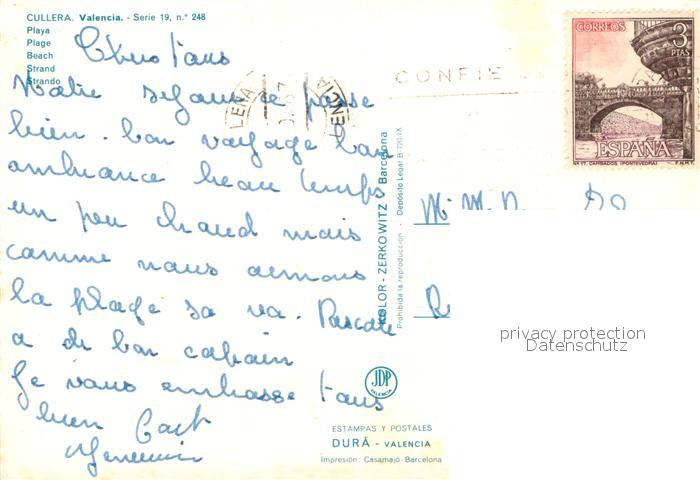 CULLERA. Valencia. - Serie 19, n.° 248
Playa
Plage
Beach
Strand
Strando
Chers tous
Notre séjour se passe
bien. bon voyage bon
ambiance beau temps
un peu chaud mais
comme nous aimons
la plage sa va. Pascale
a de bon copain
Je vous embrasse tous
bien fort
CONFIE
CORREOS
3
PTAS
ESPAÑA
CAMBADOS (PONTEVEDRA)
F.N.M.T.
KOLOR - ZERKOWITZ Barcelona
Prohibida la reproducción - Depósito Legal B-720-IX
M. M.
privacy protection
Datenschutz
JDP
VALENCIA
ESTAMPAS Y POSTALES
DURÁ - VALENCIA
Impresión: Casamajó-Barcelona